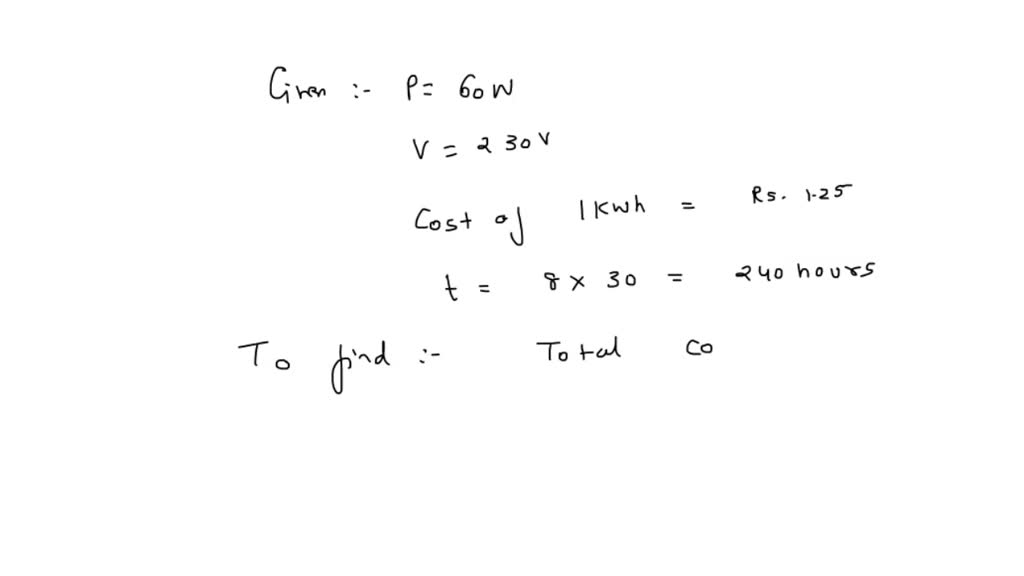 Given :- P= 60W
V = 230V
Cost of 1 KWh = Rs. 1.25
t = 8 x 30 = 240 hours
To find :- Total co